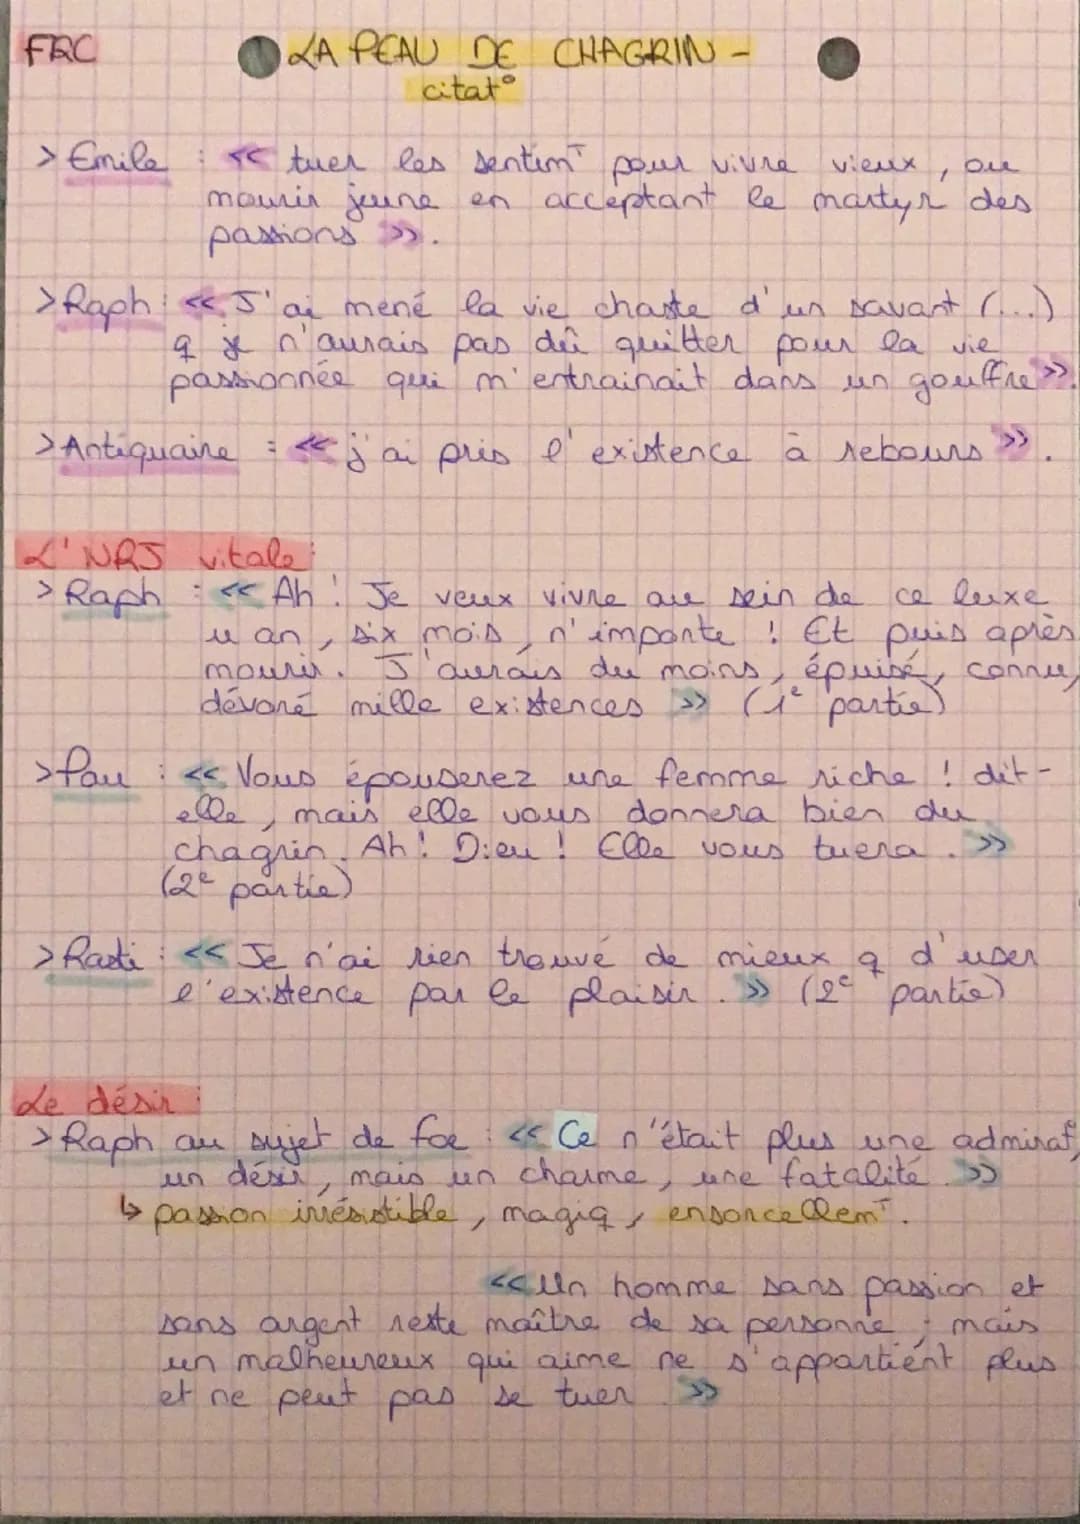 FRC
LA PEAU DE CHAGRIN -
citat°
> Emile : << tuer les sentimᵀ pour vivre vieux, ou
mourir jeune en acceptant le martyr des
passions >>.
> Raph : << J'ai mené la vie chaste d'un savant (...)
q je n'aurais pas dû quitter pour la vie
passionnée qui m'entrainait dans un gouffre >>.
> Antiquaire : << j'ai pris l'existence à rebours >>.
L'NRJ vitale :
> Raph : << Ah ! Je veux vivre au sein de ce luxe
u an, six mois, n'importe ! Et puis après
mourir. J'aurais du moins, épuisé, connu,
dévoré mille existences >> (1ᵉ partie)
> Pau : << Vous épouserez une femme riche ! dit-
elle, mais elle vous donnera bien du
chagrin. Ah ! Dieu ! Elle vous tuera. >>
(2ᵉ partie)
> Rasti : << Je n'ai rien trouvé de mieux q d'user
l'existence par le plaisir. >> (2ᵉ partie)
Le désir :
> Raph au sujet de foe : << Ce n'était plus une admirat°,
un désir, mais un charme, une fatalité. >>
↳ passion irrésistible, magiq, ensorcellemᵀ.
<< Un homme sans passion et
sans argent reste maître de sa personne ; mais
un malheureux qui aime ne s'appartient plus
et ne peut pas se tuer. >>